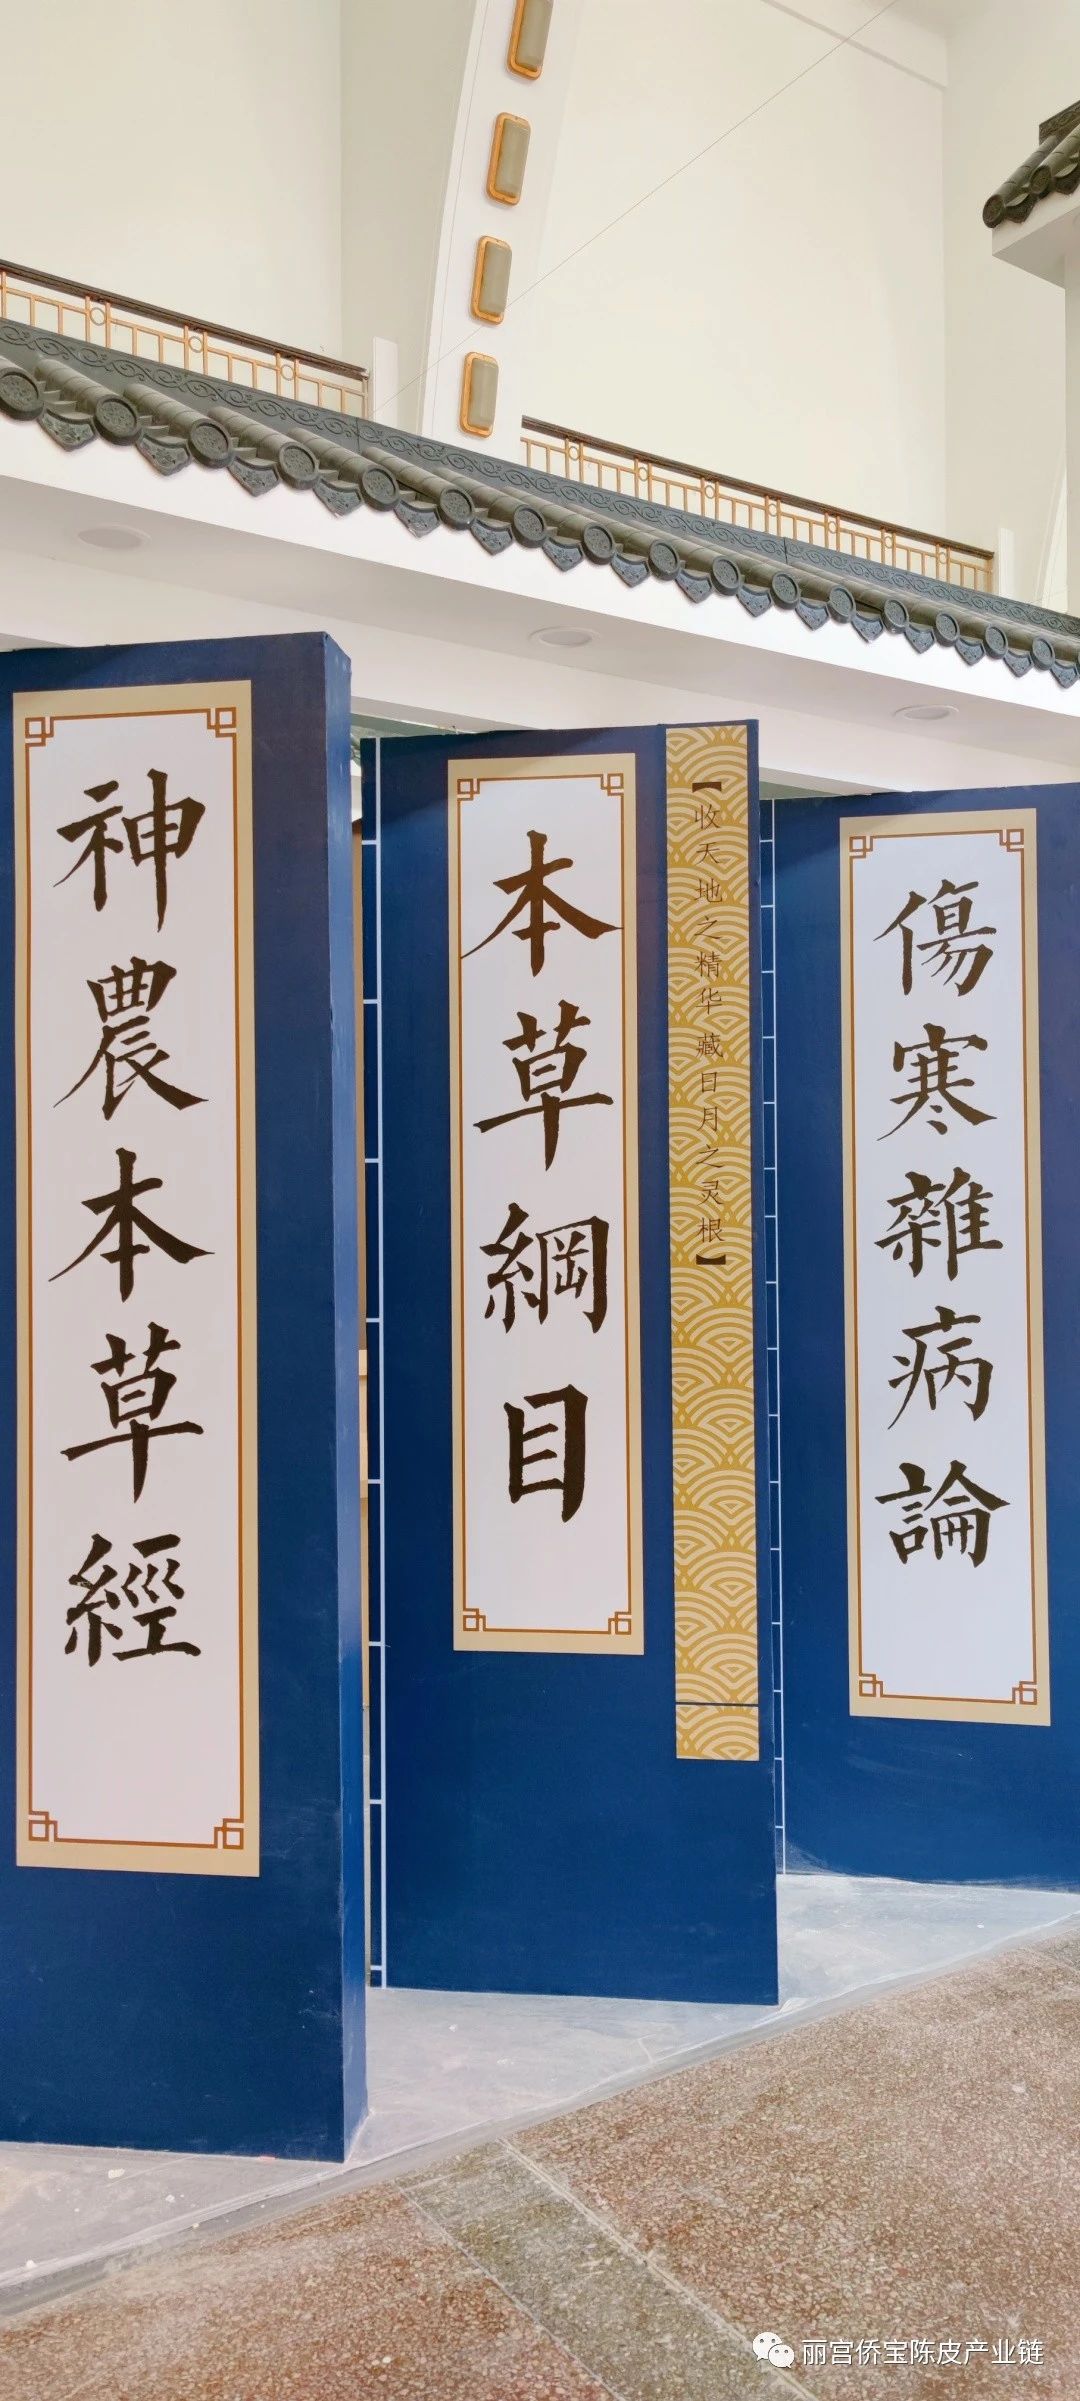 神農本草經
本草綱目
【收天地之精华藏日月之灵根】
傷寒雜病論
丽宫侨宝陈皮产业链